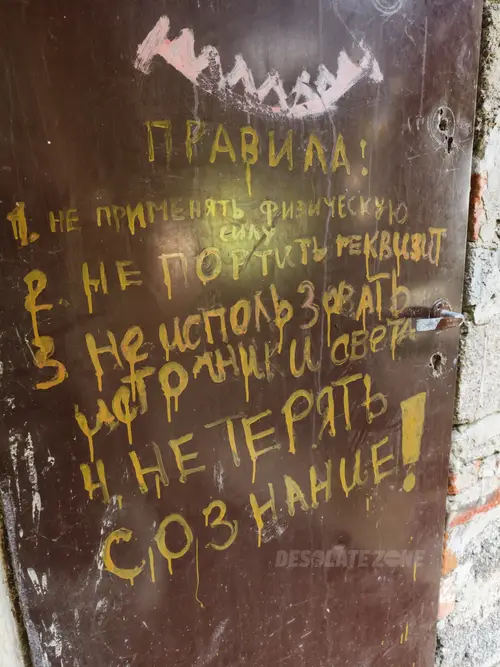 ПРАВИЛА!
1. НЕ ПРИМЕНЯТЬ ФИЗИЧЕСКУЮ
СИЛУ
2. НЕ ПОРТИТЬ РЕКВИЗИТ
3 НЕ ИСПОЛЬЗОВАТЬ
ИСТОЧНИКИ СВЕТА
4. НЕ ТЕРЯТЬ
СОЗНАНИЕ!
DESOLATE ZONE